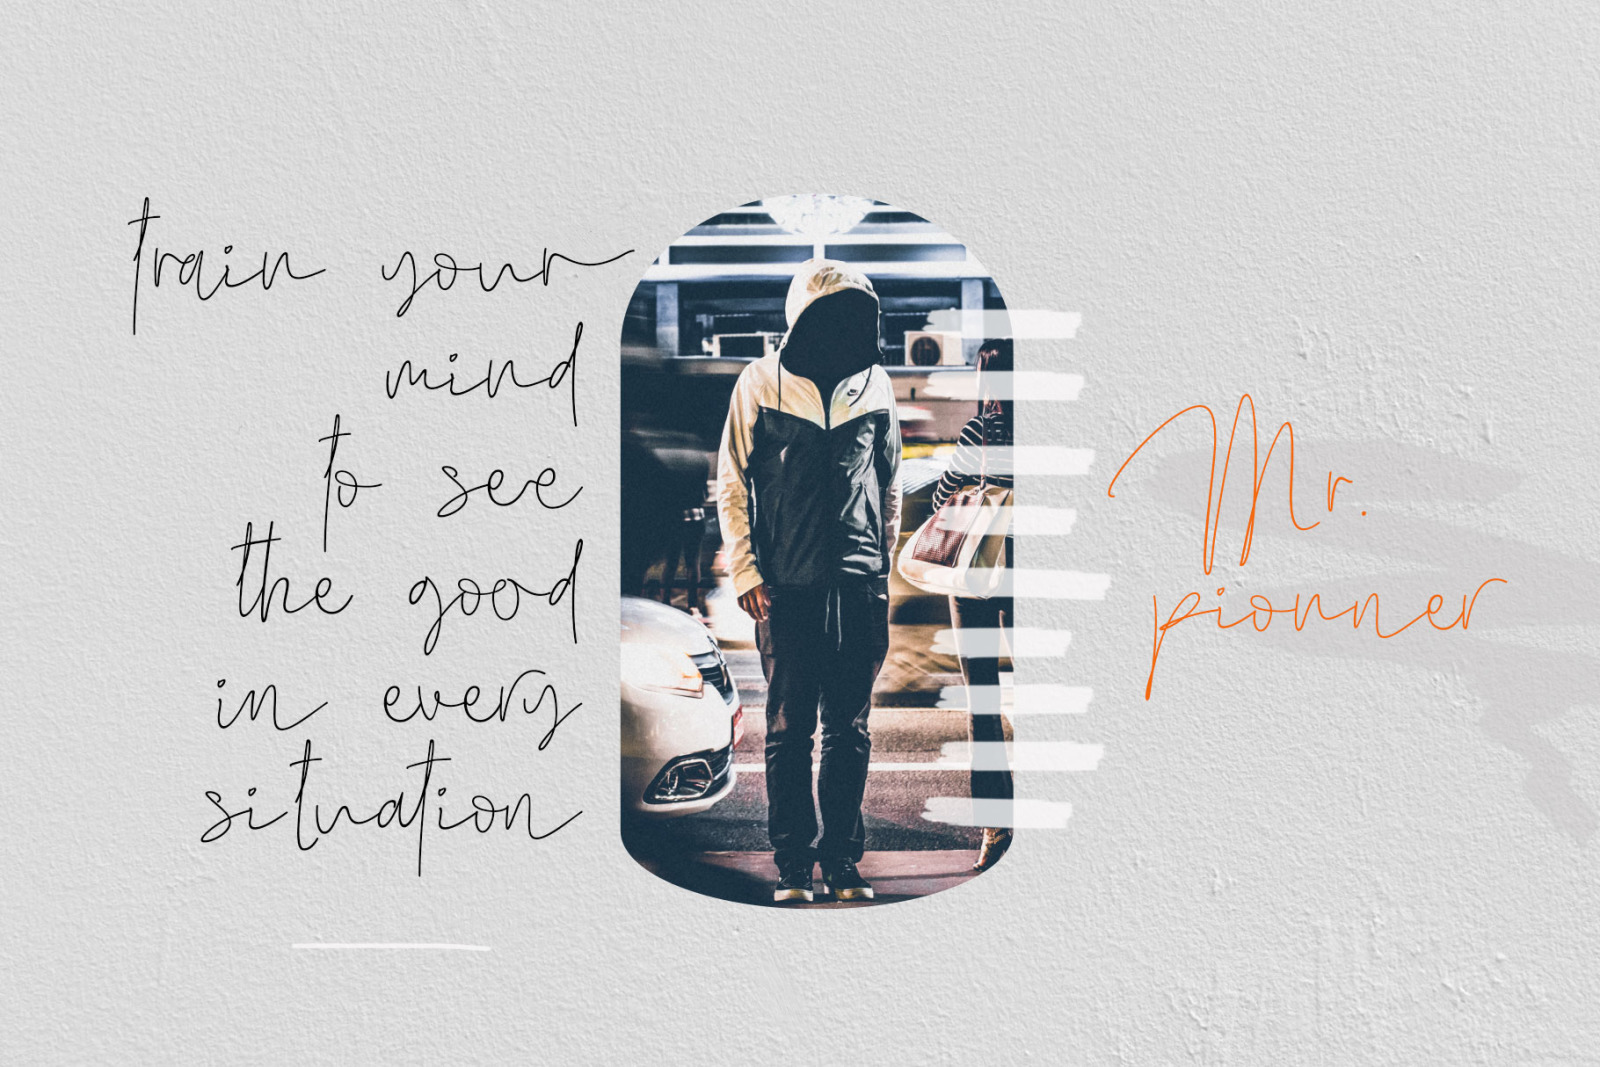 train your
mind
to see
the good
in every
situation
Mr.
pionner